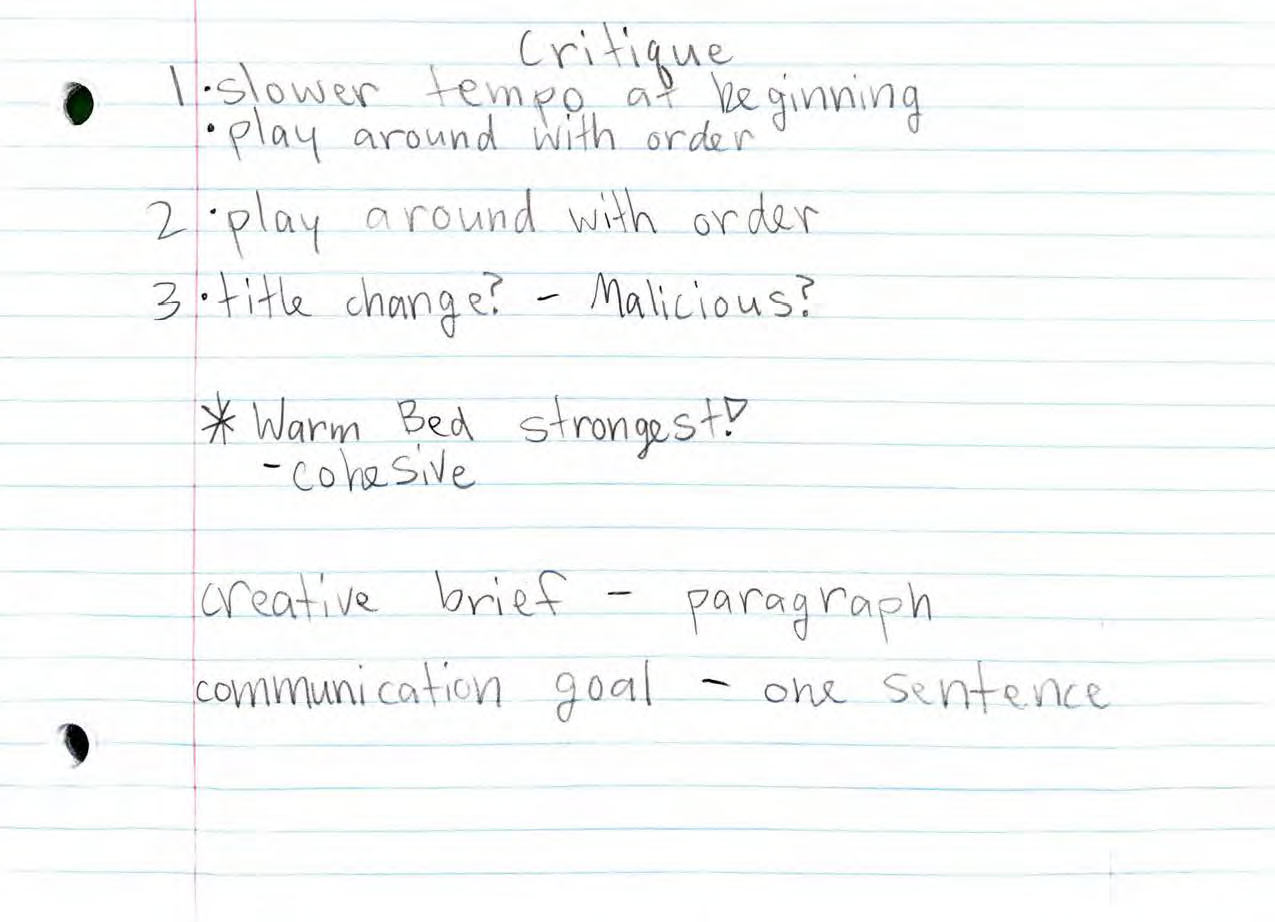 Critique
1 • slower tempo at beginning
• play around with order
2 • play around with order
3 • title change? - Malicious?
* Warm Bed strongest!
- cohesive
creative brief - paragraph
communication goal - one sentence